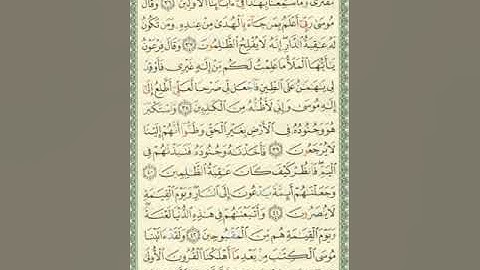 مُّفْتَرًى وَمَا سَمِعْنَا بِهَٰذَا فِىٓ ءَابَآئِنَا ٱلْأَوَّلِينَ ٣٦ وَقَالَ
مُوسَىٰ رَبِّىٓ أَعْلَمُ بِمَن جَآءَ بِٱلْهُدَىٰ مِنْ عِندِهِۦ وَمَن تَكُونُ
لَهُۥ عَٰقِبَةُ ٱلدَّارِ إِنَّهُۥ لَا يُفْلِحُ ٱلظَّٰلِمُونَ ٣٧ وَقَالَ فِرْعَوْنُ
يَٰٓأَيُّهَا ٱلْمَلَأُ مَا عَلِمْتُ لَكُم مِّنْ إِلَٰهٍ غَيْرِى فَأَوْقِدْ
لِى يَٰهَٰمَٰنُ عَلَى ٱلطِّينِ فَٱجْعَل لِّى صَرْحًا لَّعَلِّىٓ أَطَّلِعُ إِلَىٰٓ
إِلَٰهِ مُوسَىٰ وَإِنِّى لَأَظُنُّهُۥ مِنَ ٱلْكَٰذِبِينَ ٣٨ وَٱسْتَكْبَرَ
هُوَ وَجُنُودُهُۥ فِى ٱلْأَرْضِ بِغَيْرِ ٱلْحَقِّ وَظَنُّوٓا۟ أَنَّهُمْ إِلَيْنَا
لَا يُرْجَعُونَ ٣٩ فَأَخَذْنَٰهُ وَجُنُودَهُۥ فَنَبَذْنَٰهُمْ فِى
ٱلْيَمِّ فَٱنظُرْ كَيْفَ كَانَ عَٰقِبَةُ ٱلظَّٰلِمِينَ ٤٠
وَجَعَلْنَٰهُمْ أَئِمَّةً يَدْعُونَ إِلَى ٱلنَّارِ وَيَوْمَ ٱلْقِيَٰمَةِ
لَا يُنصَرُونَ ٤١ وَأَتْبَعْنَٰهُمْ فِى هَٰذِهِ ٱلدُّنْيَا لَعْنَةً
وَيَوْمَ ٱلْقِيَٰمَةِ هُم مِّنَ ٱلْمَقْبُوحِينَ ٤٢ وَلَقَدْ ءَاتَيْنَا
مُوسَى ٱلْكِتَٰبَ مِنۢ بَعْدِ مَآ أَهْلَكْنَا ٱلْقُرُونَ ٱلْأُولَىٰ